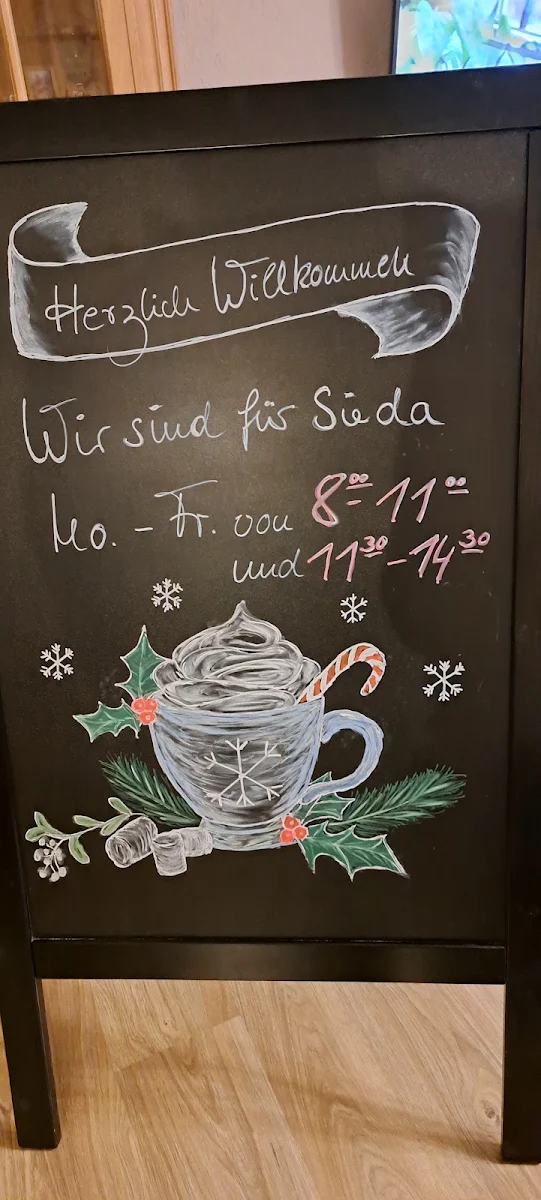 Herzlich Willkommen
Wir sind für Sie da
Mo. - Fr. von 8⁰⁰-11⁰⁰
und 11³⁰-14³⁰